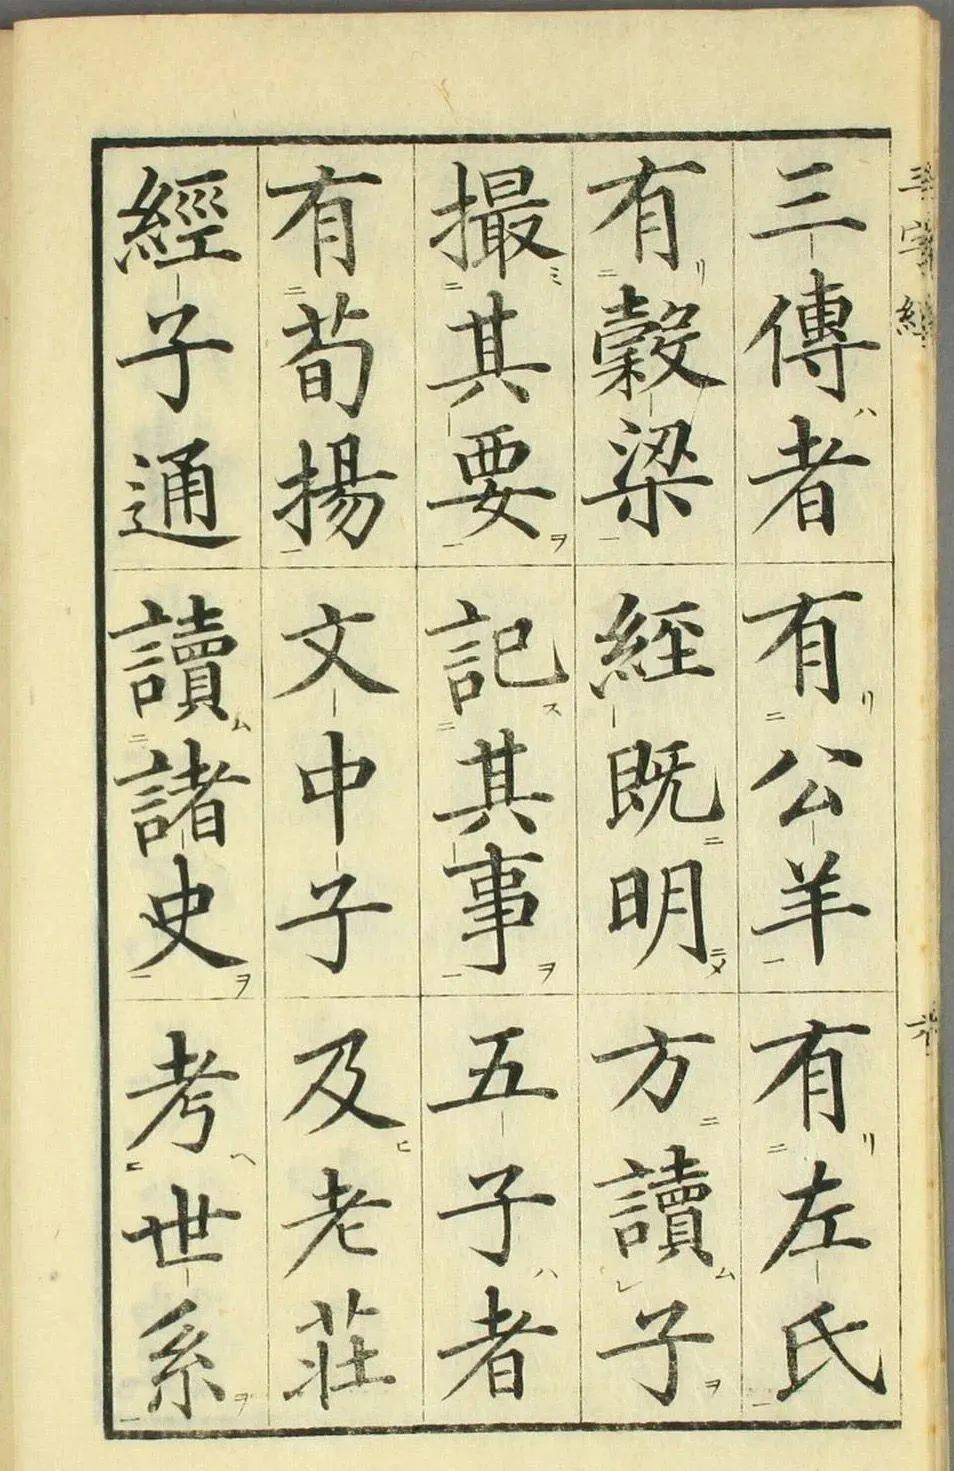 三傳者有公羊有左氏
有穀梁經既明方讀子
撮其要記其事五子者
有荀揚文中子及老莊
經子通讀諸史考世系